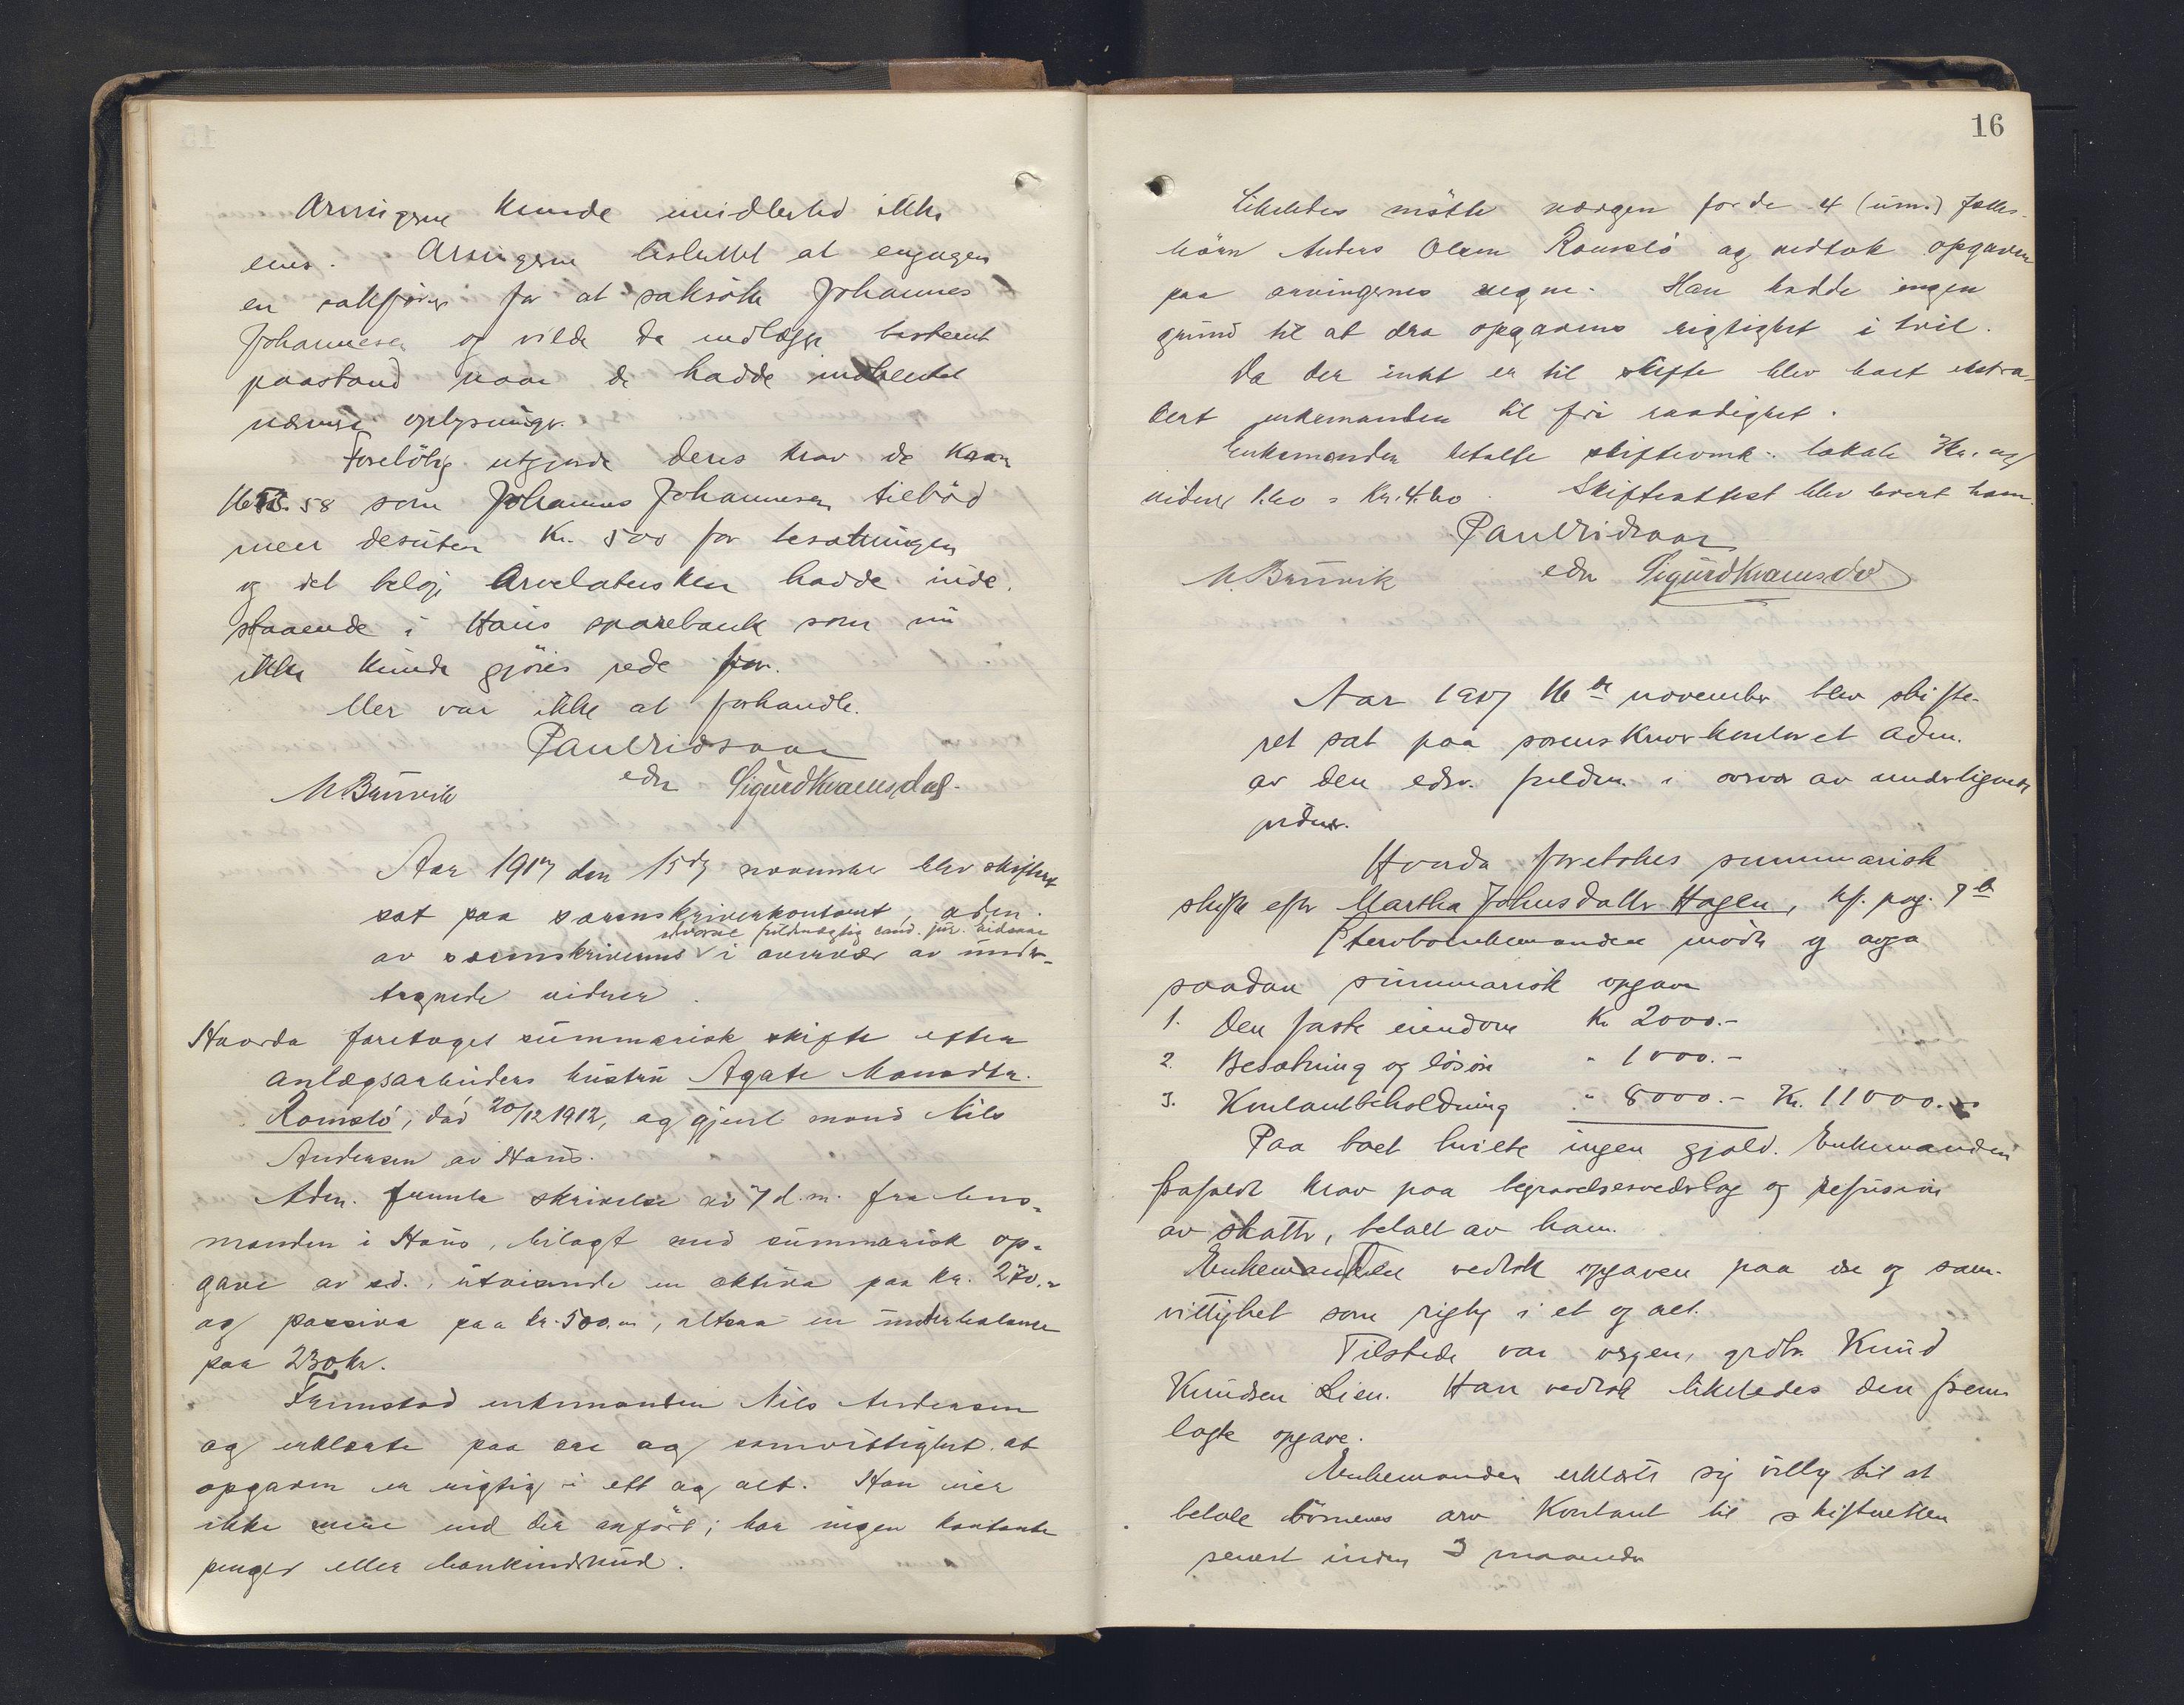 Arvingerne kunde imidlertid ikke
enes. Arvingerne besluttet at engagere
en sakfører for at saksøke Johannes
Johannesen og vilde da nedlægge bestemt
paastand naar de hadde indhentet
nærmere oplysninger.
Foreløbig utgjorde deres krav de Kroner
58 som Johannes Johannesen tilbød
men desuten Kr. 500 for besætningen
og det beløp Arvelatersken hadde inde-
staaende i Haus sparebank som nu
ikke kunde gjøres rede for.
Mer var ikke at forhandle.
Paul Vidsaar
edsv
M. Brunvik Sigurd Kvamsdal.
Aar 1917 den 15de november blev skifteret
sat paa sorenskriverkontoret, adm.
edsvorne fuldmægtig cand. jur. Vidsaar
av sorenskriverens i overvær av under-
tegnede vidner.
Hvorda foretoges summarisk skifte efter
anlægsarbeiders hustru Agate Monsdtr.
Romslo, død 20/12 1912, og gjenl. mand Nils
Andersen av Haus.
Adm. fremla skrivelse av 7 d.m. fra lens-
manden i Haus, bilagt med summarisk op-
gave av s.d., utvisende en aktiva paa kr. 270.-
og passiva paa kr. 500.00, altsaa en underbalance
paa 230 kr.
Fremstod enkemanden Nils Andersen
og erklærte paa ære og samvittighet at
opgaven er rigtig i ett og alt. Han eier
ikke mere end der anført; har ingen kontante
penger eller bankindskud.
16
Likeledes møtte vergen for de 4 (um.) fælles-
børn Anders Olsen Romslo og vedtok opgaven
paa arvingernes vegne. Han hadde ingen
grund til at dra opgavens rigtighet i tvil.
Da der intet er til skifte blev boet extra-
dert enkemanden til fri raadighet.
Enkemanden betalte skifteomk. lokale 3 kr. og
vidner 1.60 = Kr. 4.60. Skifteattest blev levert ham.
Paul Vidsaar
edsv
M. Brunvik Sigurd Kvamsdal
Aar 1917 16de november blev skifte-
ret sat paa sorenskriverkontoret adm.
av den edsv. fuldm. i overvær av undertegnede
vidner.
Hvorda foretokes summarisk
skifte efter Martha Johnsdatter Hagen, kf. pag. 9b
Stervboenkemanden møtte og avga
saadan summarisk opgave
1. Den faste eiendom Kr 2000.-
2. Besætning og løsøre " 1000.-
3. Kontantbeholdning " 8000.- Kr. 11000.00
Paa boet hvilte ingen gjæld. Enkemanden
frafaldt krav paa begravelsesvederlag og refusion
av skatter, betalt av ham.
Enkemanden vedtok opgaven paa ære og sam-
vittighet som rigtig i et og alt.
Tilstede var vergen, grdbr. Knud
Knudsen Lien. Han vedtok likeledes den frem-
lagte opgave.
Enkemanden erklærte sig villig til at
betale børnenes arv kontant til skifteretten
senest inden 3 maaneder